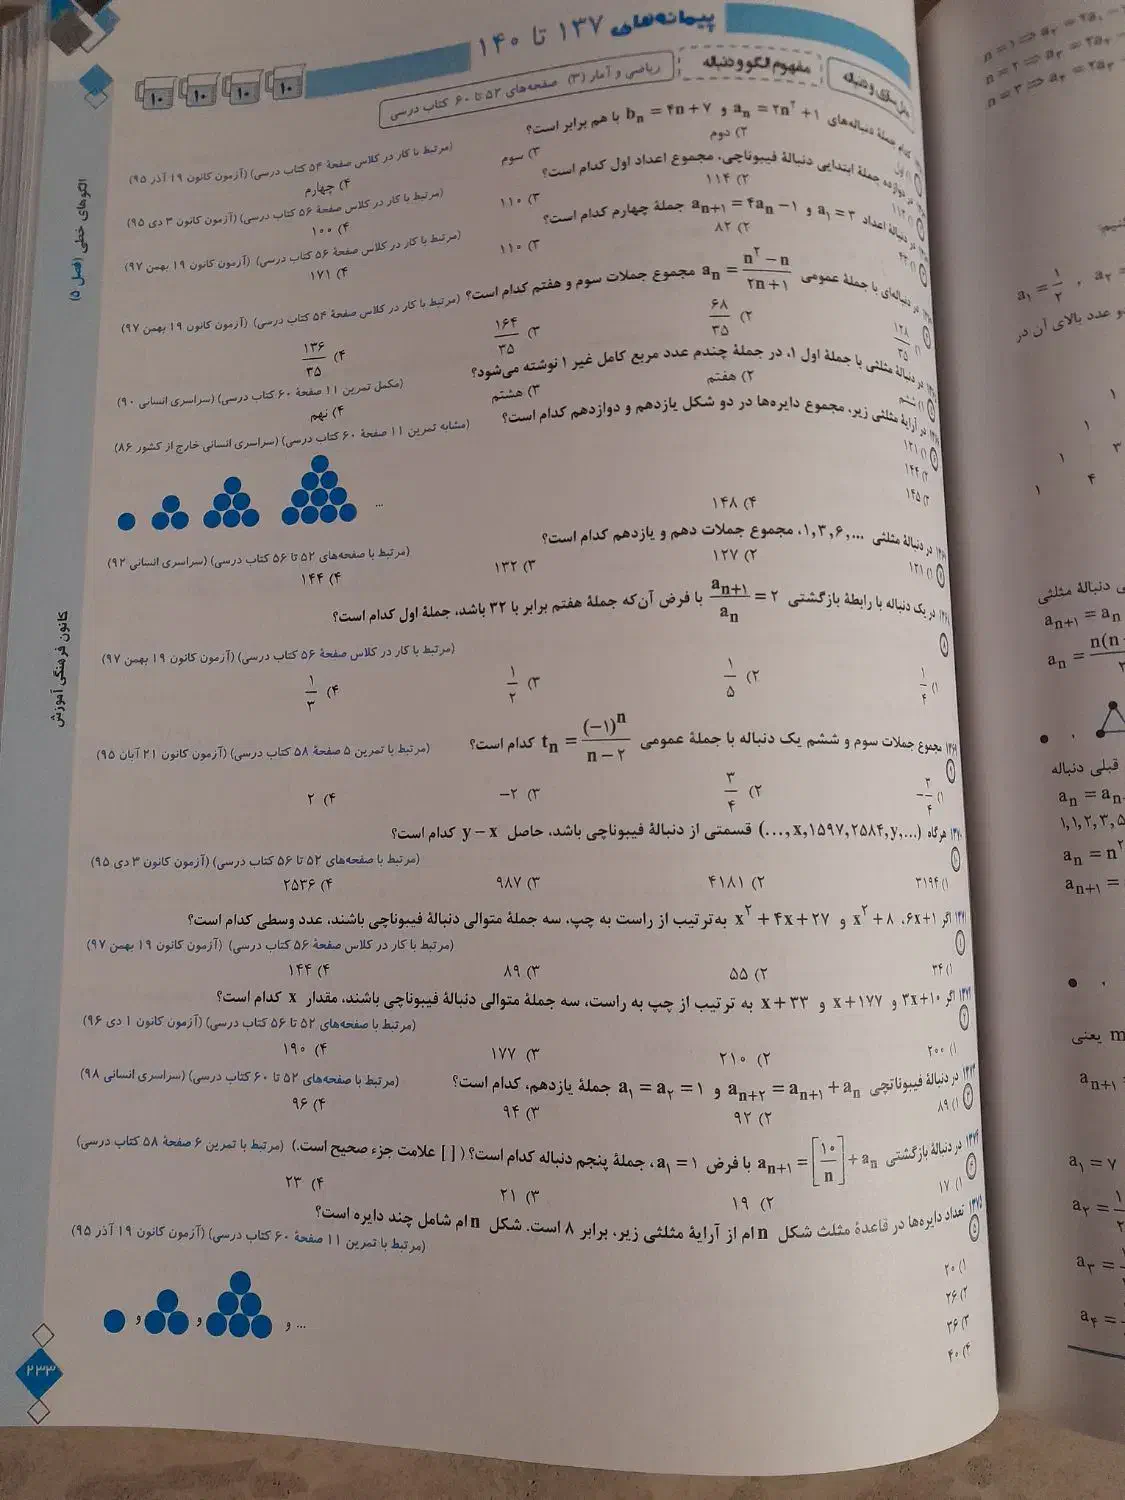 پیمانه‌های ۱۳۷ تا ۱۴۰
مدل‌سازی و دنباله
مفهوم الگو و دنباله
ریاضی و آمار (۳) صفحه‌های ۵۲ تا ۶۰ کتاب درسی
۱۰ ۱۰ ۱۰ ۱۰
کدام جملهٔ دنباله‌های aₙ = ۲n² + ۱ و bₙ = ۴n + ۷ با هم برابر است؟
(مرتبط با کار در کلاس صفحهٔ ۵۴ کتاب درسی) (آزمون کانون ۱۹ آذر ۹۵)
۱) اول ۲) دوم ۳) سوم ۴) چهارم
در دوازده جملهٔ ابتدایی دنبالهٔ فیبوناچی، مجموع اعداد اول کدام است؟
(مرتبط با کار در کلاس صفحهٔ ۵۶ کتاب درسی) (آزمون کانون ۳ دی ۹۵)
۱) ۱۱۲ ۲) ۱۱۴ ۳) ۱۱۰ ۴) ۱۰۰
در دنبالهٔ اعداد a₁ = ۳ و aₙ₊₁ = ۴aₙ − ۱ جملهٔ چهارم کدام است؟
(مرتبط با کار در کلاس صفحهٔ ۵۶ کتاب درسی) (آزمون کانون ۱۹ بهمن ۹۷)
۱) ۴۳ ۲) ۸۲ ۳) ۱۱۰ ۴) ۱۷۱
در دنباله‌ای با جملهٔ عمومی aₙ = (n² − n)/(۲n + ۱) مجموع جملات سوم و هفتم کدام است؟ (مرتبط با کار در کلاس صفحهٔ ۵۴ کتاب درسی) (آزمون کانون ۱۹ بهمن ۹۷)
۱) ۱۲۸/۳۵ ۲) ۶۸/۳۵ ۳) ۱۶۴/۳۵ ۴) ۱۳۶/۳۵
در دنبالهٔ مثلثی با جملهٔ اول ۱، در جملهٔ چندم عدد مربع کامل غیر ۱ نوشته می‌شود؟
(مکمل تمرین ۱۱ صفحهٔ ۶۰ کتاب درسی) (سراسری انسانی ۹۰)
۱) ششم ۲) هفتم ۳) هشتم ۴) نهم
۱۳۶۶ در آرایهٔ مثلثی زیر، مجموع دایره‌ها در دو شکل یازدهم و دوازدهم کدام است؟
(مشابه تمرین ۱۱ صفحهٔ ۶۰ کتاب درسی) (سراسری انسانی خارج از کشور ۸۶)
۱) ۱۲۱
۲) ۱۴۴
۳) ۱۴۵
۴) ۱۴۸
...
۱۳۶۷ در دنبالهٔ مثلثی ...,۱,۳,۶، مجموع جملات دهم و یازدهم کدام است؟
(مرتبط با صفحه‌های ۵۲ تا ۵۶ کتاب درسی) (سراسری انسانی ۹۲)
۱) ۱۲۱ ۲) ۱۲۷ ۳) ۱۳۲ ۴) ۱۴۴
۱۳۶۸ در یک دنباله با رابطهٔ بازگشتی aₙ₊₁/aₙ = ۲ با فرض آن‌که جملهٔ هفتم برابر با ۳۲ باشد، جملهٔ اول کدام است؟
(مرتبط با کار در کلاس صفحهٔ ۵۶ کتاب درسی) (آزمون کانون ۱۹ بهمن ۹۷)
۱) ۱/۴ ۲) ۱/۵ ۳) ۱/۲ ۴) ۱/۳
۱۳۶۹ مجموع جملات سوم و ششم یک دنباله با جملهٔ عمومی tₙ = (−۱)ⁿ/(n − ۲) کدام است؟
(مرتبط با تمرین ۵ صفحهٔ ۵۸ کتاب درسی) (آزمون کانون ۲۱ آبان ۹۵)
۱) −۳/۴ ۲) ۳/۴ ۳) −۲ ۴) ۲
۱۳۷۰ هرگاه (...,x,۱۵۹۷,۲۵۸۴,y,...) قسمتی از دنبالهٔ فیبوناچی باشد، حاصل y − x کدام است؟
(مرتبط با صفحه‌های ۵۲ تا ۵۶ کتاب درسی) (آزمون کانون ۳ دی ۹۵)
۱) ۳۱۹۴ ۲) ۴۱۸۱ ۳) ۹۸۷ ۴) ۲۵۳۶
۱۳۷۱ اگر ۶x+۱، x² + ۸ و x² + ۴x + ۲۷ به‌ترتیب از راست به چپ، سه جملهٔ متوالی دنبالهٔ فیبوناچی باشند، عدد وسطی کدام است؟
(مرتبط با کار در کلاس صفحهٔ ۵۶ کتاب درسی) (آزمون کانون ۱۹ بهمن ۹۷)
۱) ۳۴ ۲) ۵۵ ۳) ۸۹ ۴) ۱۴۴
۱۳۷۲ اگر ۳x+۱۰ و x+۱۷۷ و x+۳۳ به ترتیب از چپ به راست، سه جملهٔ متوالی دنبالهٔ فیبوناچی باشند، مقدار x کدام است؟
(مرتبط با صفحه‌های ۵۲ تا ۵۶ کتاب درسی) (آزمون کانون ۱ دی ۹۶)
۱) ۲۰۰ ۲) ۲۱۰ ۳) ۱۷۷ ۴) ۱۹۰
۱۳۷۳ در دنبالهٔ فیبوناتچی aₙ₊₂ = aₙ₊₁ + aₙ و a₁ = a₂ = ۱ جملهٔ یازدهم، کدام است؟
(مرتبط با صفحه‌های ۵۲ تا ۶۰ کتاب درسی) (سراسری انسانی ۹۸)
۱) ۸۹ ۲) ۹۲ ۳) ۹۴ ۴) ۹۶
۱۳۷۴ در دنبالهٔ بازگشتی aₙ₊₁ = [۱۰/n] + aₙ با فرض a₁ = ۱، جملهٔ پنجم دنباله کدام است؟ ([ ] علامت جزء صحیح است.) (مرتبط با تمرین ۶ صفحهٔ ۵۸ کتاب درسی)
۱) ۱۷ ۲) ۱۹ ۳) ۲۱ ۴) ۲۳
۱۳۷۵ تعداد دایره‌ها در قاعدهٔ مثلث شکل nام از آرایهٔ مثلثی زیر، برابر ۸ است. شکل nام شامل چند دایره است؟
(مرتبط با تمرین ۱۱ صفحهٔ ۶۰ کتاب درسی) (آزمون کانون ۱۹ آذر ۹۵)
۱) ۲۰
۲) ۲۶
۳) ۳۶
۴) ۴۰
و و و ...
الگوهای خطی (فصل ۵)
کانون فرهنگی آموزش
۲۳۳
n = ۱ ⇒ a₂ = ۲a₁
n = ۲ ⇒ a₃ = ۲a₂
n = ۳ ⇒ a₄ = ۲a₃
a₁ = ۱/۲ , a₂ =
دو عدد بالای آن در
۱
۱
۱ ۳
۱ ۴
دنبالهٔ مثلثی
aₙ₊₁ = aₙ
قبلی دنباله
۱,۱,۲,۳,۵
aₙ = n²
aₙ₊₁ =
یعنی m
aₙ₊₁
a₁ = ۷
a₂ =
a₃ =
a₄ =